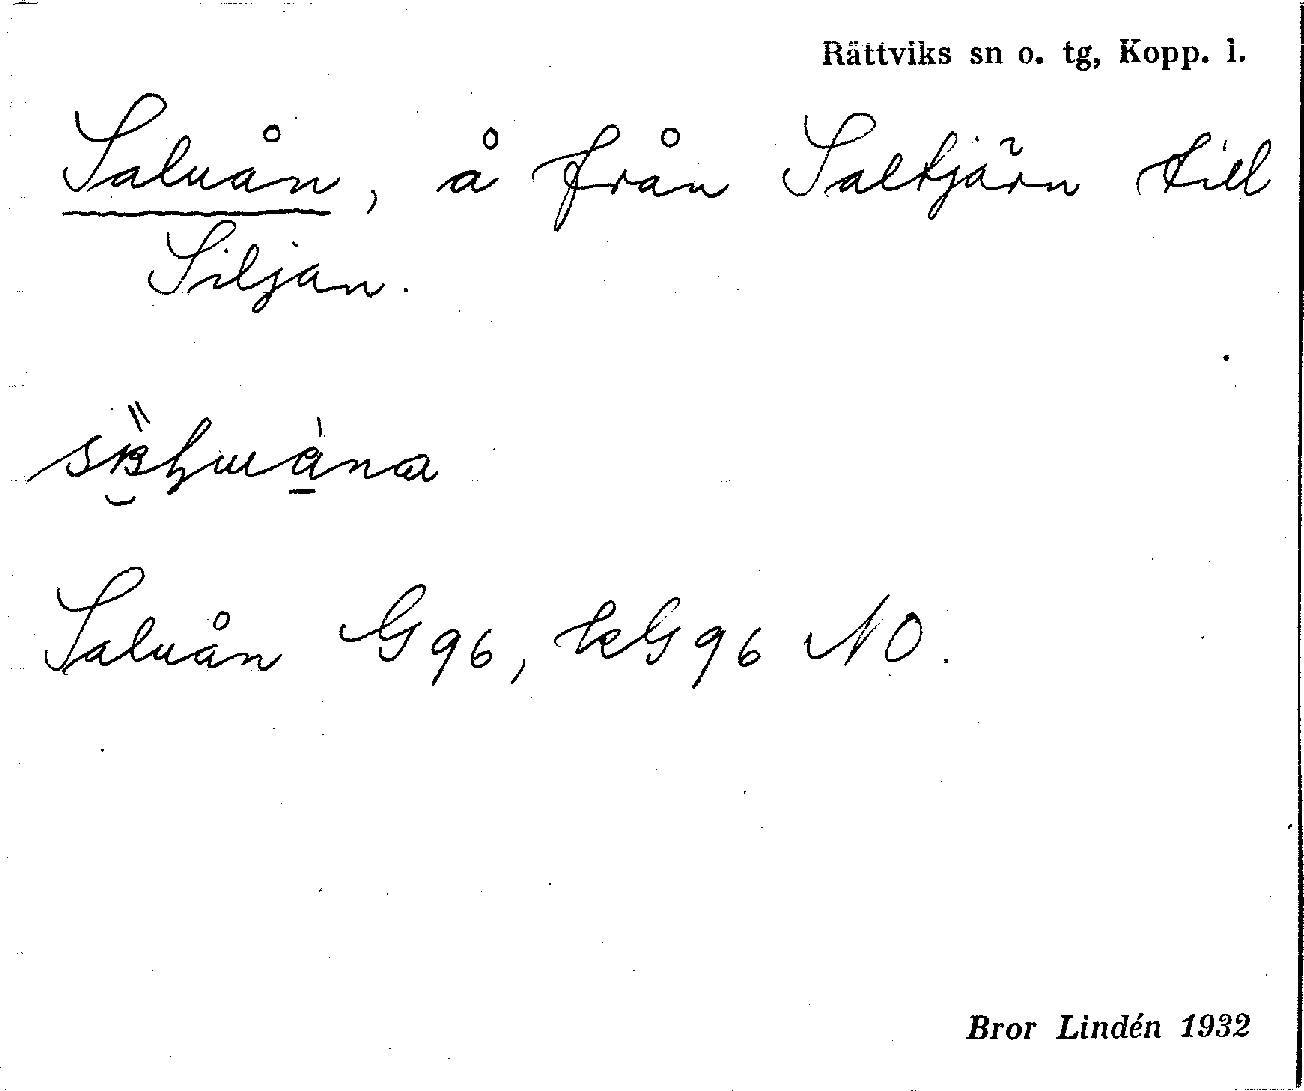 Rättviks sn o. tg, Kopp. l.
Saluån, å från Saltjärn till
Siljan.
Saluån G96, kG96 NO.
Bror Lindén 1932